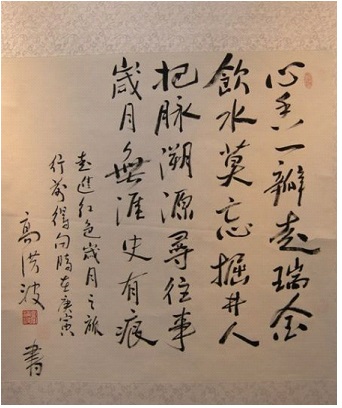 心香一瓣走瑞金
飲水莫忘掘井人
把脉溯源尋往事
歲月無涯史有痕
走進红色歲月之旅
行前得句時在庚寅
高洪波
書